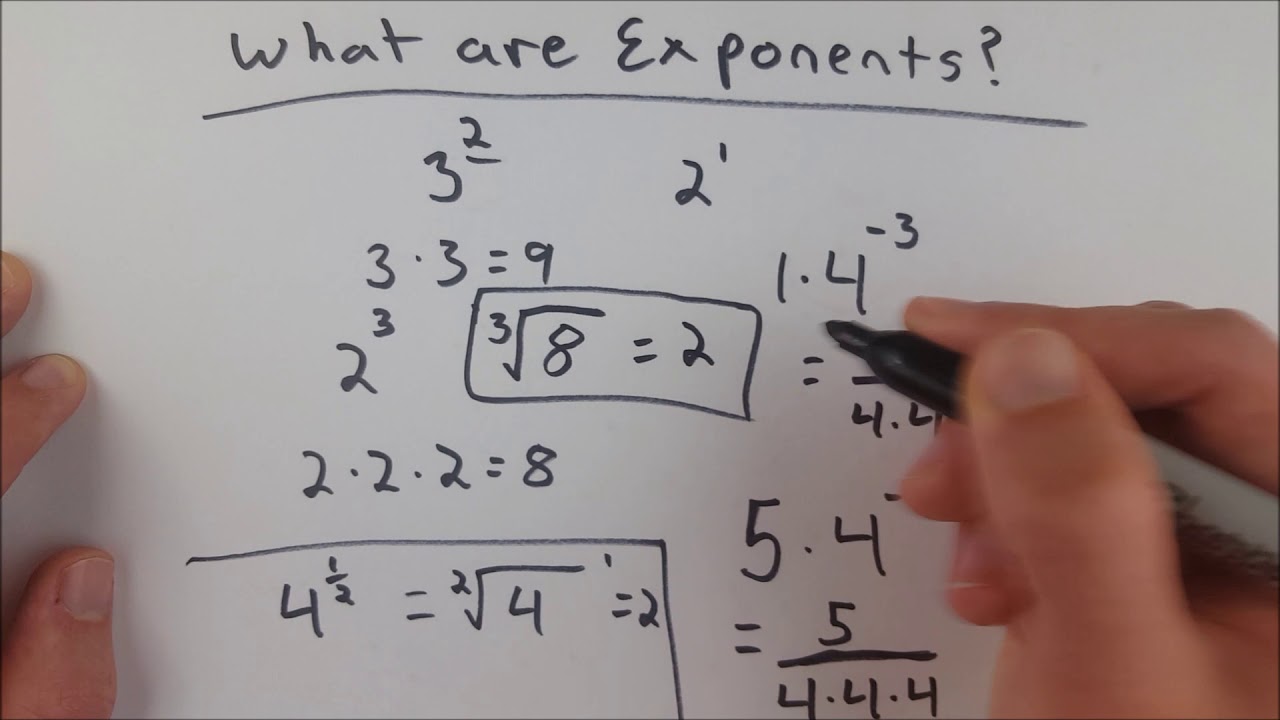 What are Exponents?
3² 2¹
3·3=9
1·4⁻³
2³
∛8 = 2
= 4·4
2·2·2=8
5·4⁻
4^½ = ²√4 ¹ =2
= 5/4·4·4